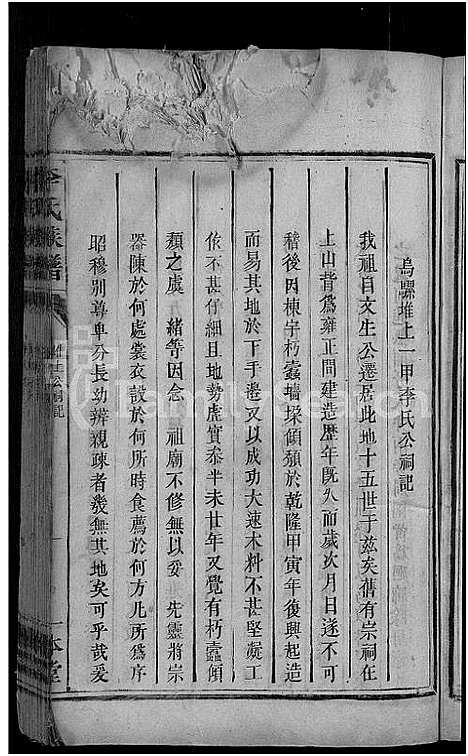 烏騾堆上一甲李氏公祠記
我祖自文生公遷居此地十五世于茲矣舊有宗祠在
上山背爲雍正間建造歷年旣久而歲次月日遂不可
稽後因棟宇朽蠹墻垛傾頹於乾隆甲寅年復興起造
而易其地於下手邊又以成功太速木料不甚堅凝工
依不甚仔細且地勢虎實泰半未廿年又覺有朽蠹傾
頹之虞 緒等因念 祖廟不修無以妥 先靈將宗
器陳於何處裳衣設於何所時食薦於何方凡所爲序
昭穆別尊卑分長幼辨親疎者幾無其地矣可乎哉爰
李氏族譜
公祠記
一本堂